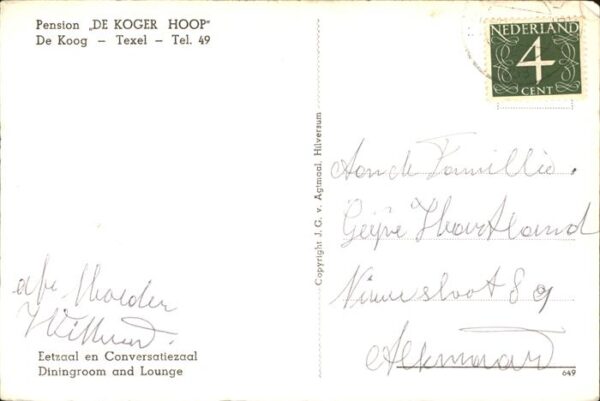 Pension „DE KOGER HOOP"
De Koog – Texel – Tel. 49
NEDERLAND
4
CENT
Copyright J. G. v. Agtmaal, Hilversum
Aan de Famillie
Hartland
Nieuwesloot 89
Alkmaar
afz. Moeder
Eetzaal en Conversatiezaal
Diningroom and Lounge
649